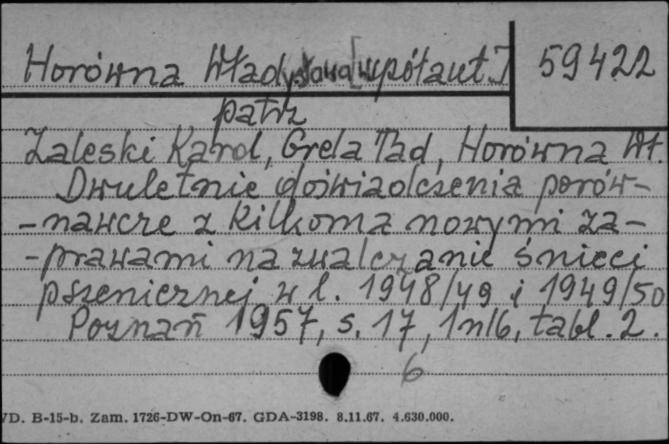 Horówna Władysława [współaut.] 59422
patrz
Zaleski Karol, Grela Tad, Horówna Wł.
Dwuletnie doświadczenia porów-
-nawcze z kilkoma nowymi za-
-prawami na zwalczanie śnieci
pszenicznej w l. 1948/49 i 1949/50
Poznań 1957, s. 17, 1nlb, tabl. 2.
6
VD. B-15-b. Zam. 1726-DW-On-67. GDA-3198. 8.11.67. 4.630.000.